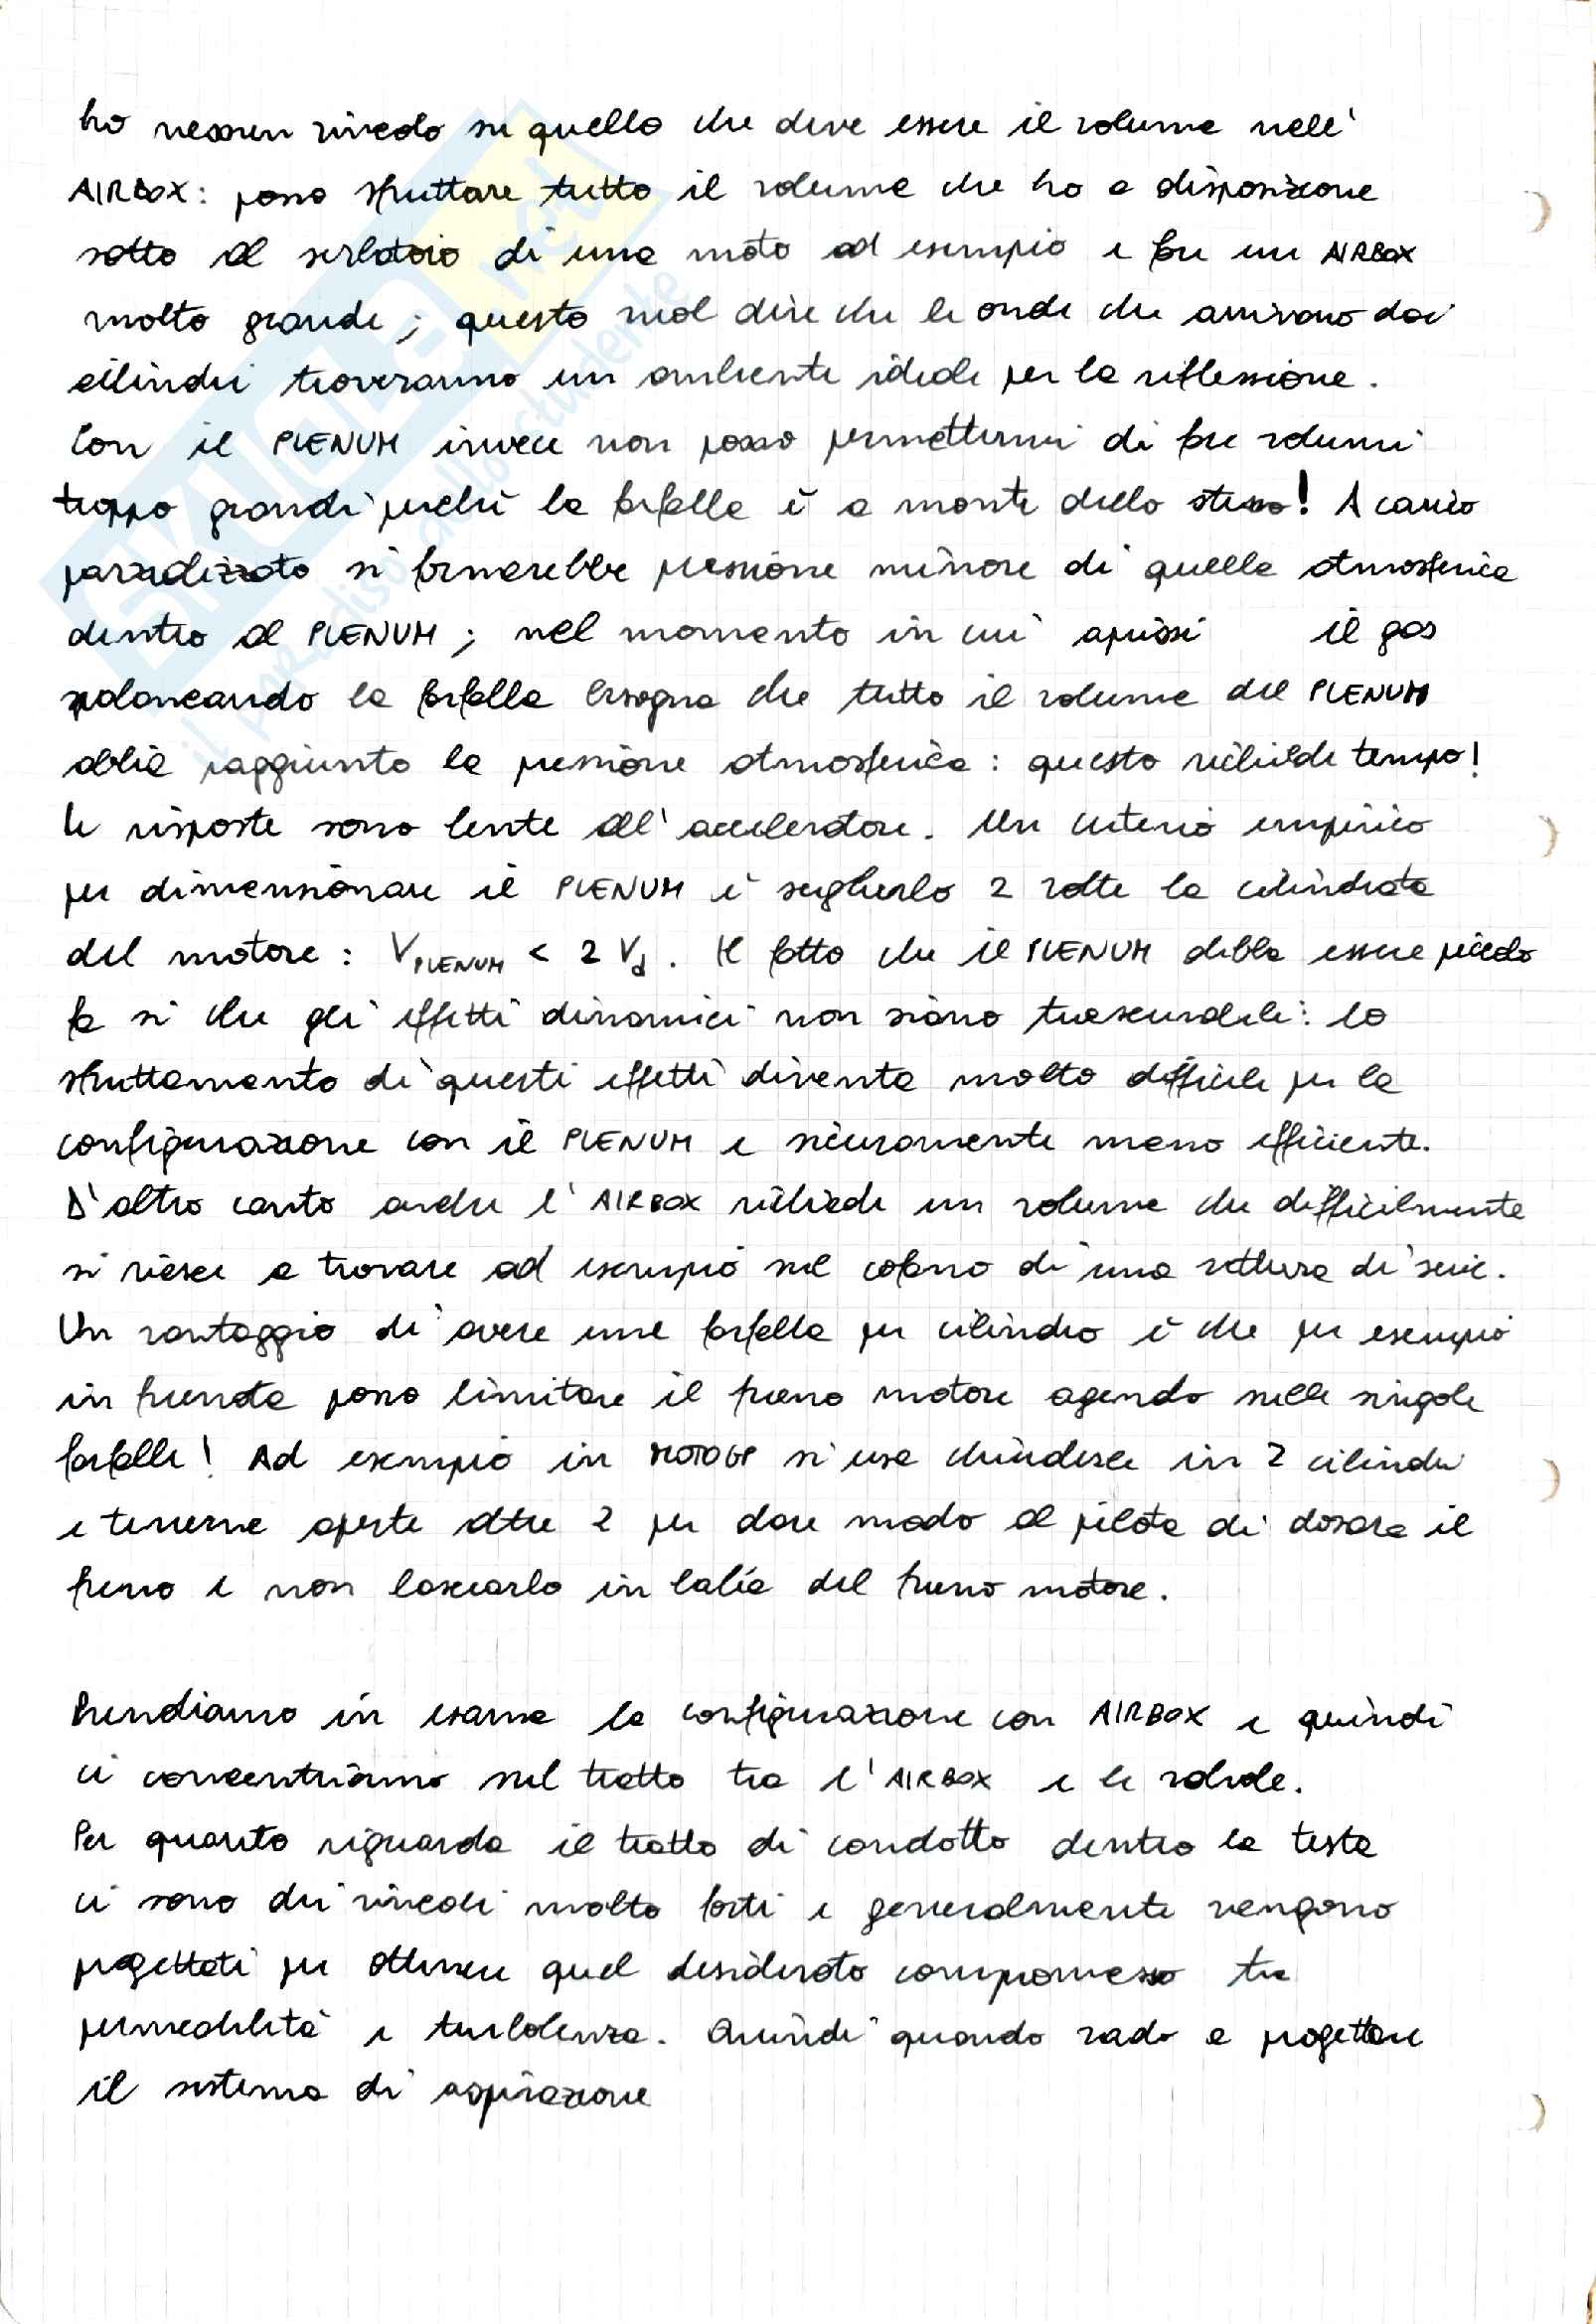 ho nessun vincolo su quello che deve essere il volume nell'
AIRBOX: posso sfruttare tutto il volume che ho a disposizione
sotto al serbatoio di una moto ad esempio e fare un AIRBOX
molto grande; questo vuol dire che le onde che arrivano dai
cilindri troveranno un ambiente ideale per la riflessione.
Con il PLENUM invece non posso permettermi di fare volumi
troppo grandi perché la farfalla è a monte dello stesso! A carico
parzializzato si formerebbe pressione minore di quella atmosferica
dentro al PLENUM; nel momento in cui aprissi il gas
spalancando la farfalla bisogna che tutto il volume del PLENUM
abbia raggiunto la pressione atmosferica: questo richiede tempo!
Le risposte sono lente all'acceleratore. Un criterio empirico
per dimensionare il PLENUM è sceglierlo 2 volte la cilindrata
del motore: V_PLENUM < 2 V_d. Il fatto che il PLENUM debba essere piccolo
fa sì che gli effetti dinamici non siano trascurabili: lo
sfruttamento di questi effetti diventa molto difficile per la
configurazione con il PLENUM e sicuramente meno efficiente.
D'altro canto anche l'AIRBOX richiede un volume che difficilmente
si riesce a trovare ad esempio nel cofano di una vettura di serie.
Un vantaggio di avere una farfalla per cilindro è che per esempio
in frenata posso limitare il freno motore agendo sulle singole
farfalle! Ad esempio in MOTOGP si usa chiuderle in 2 cilindri
e tenerne aperte altre 2 per dare modo al pilota di dosare il
freno e non lasciarlo in balia del freno motore.
Prendiamo in esame la configurazione con AIRBOX e quindi
ci concentriamo sul tratto tra l'AIRBOX e le valvole.
Per quanto riguarda il tratto di condotto dentro la testa
ci sono dei vincoli molto forti e generalmente vengono
progettati per ottenere quel desiderato compromesso tra
permeabilità e turbolenza. Quindi quando vado a progettare
il sistema di aspirazione